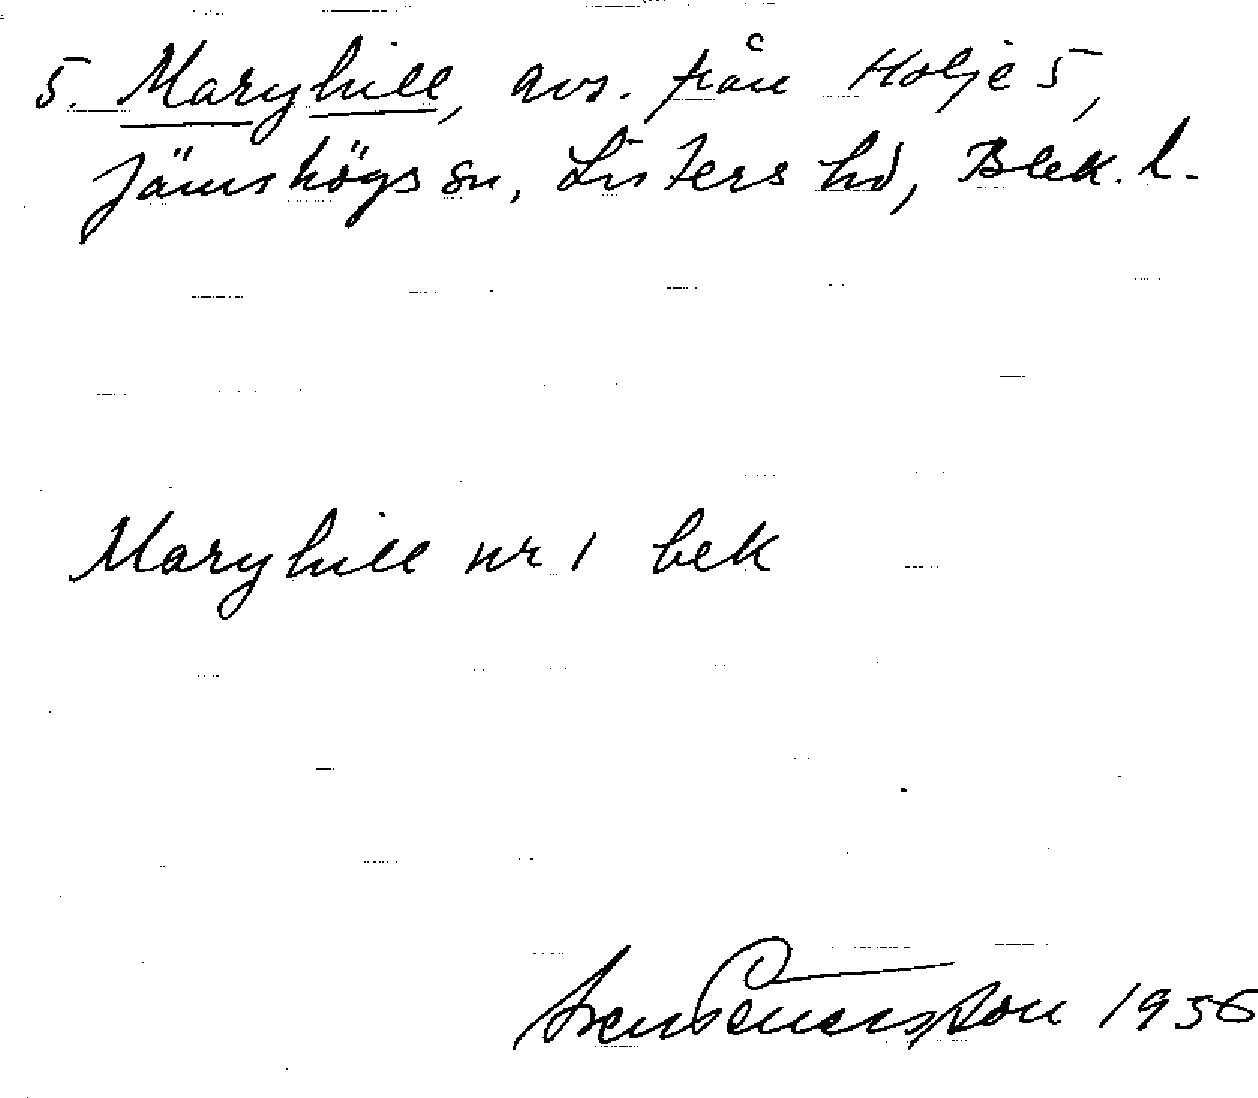 5. Maryhill, avs. från Holje 5,
Jämshögs sn, Listers hd, Blek. l.
Maryhill nr 1 bek
Sven Benson 1956